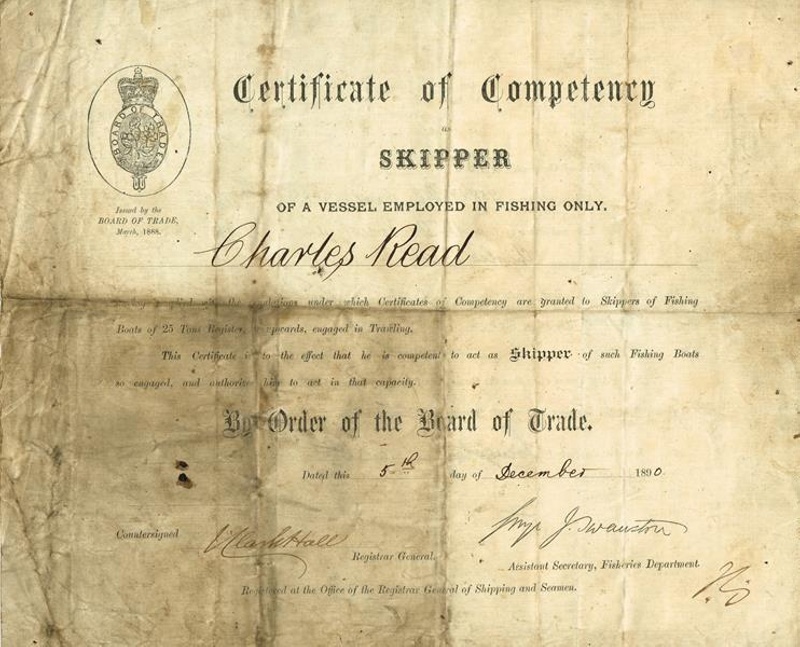 Certificate of Competency
as
SKIPPER
OF A VESSEL EMPLOYED IN FISHING ONLY.
BOARD OF TRADE
Issued by the
BOARD OF TRADE,
March, 1888.
Charles Read
the under which Certificates of Competency are granted to Skippers of Fishing
Boats of 25 Tons Register, upwards, engaged in Trawling.
This Certificate is to the effect that he is competent to act as Skipper of such Fishing Boats
so engaged, and authorizes him to act in that capacity.
By Order of the Board of Trade.
Dated this 5th day of December 1890
Countersigned
Registrar General.
Swanston
Assistant Secretary, Fisheries Department.
Registered at the Office of the Registrar General of Shipping and Seamen.